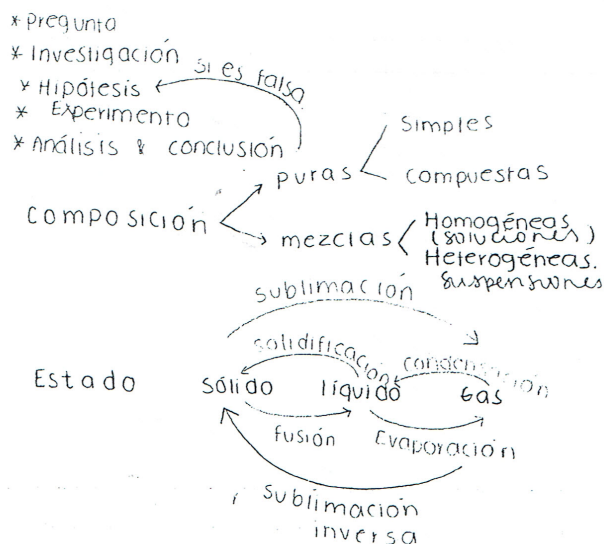 * Pregunta
* Investigación
si es falsa
* Hipótesis
* Experimento
* Análisis & conclusión
simples
puras
compuestas
composición
mezclas
Homogéneas
(soluciones)
Heterogéneas.
suspensiones
sublimación
solidificación
condensación
Estado
sólido
líquido
Gas
fusión
Evaporación
sublimación
inversa